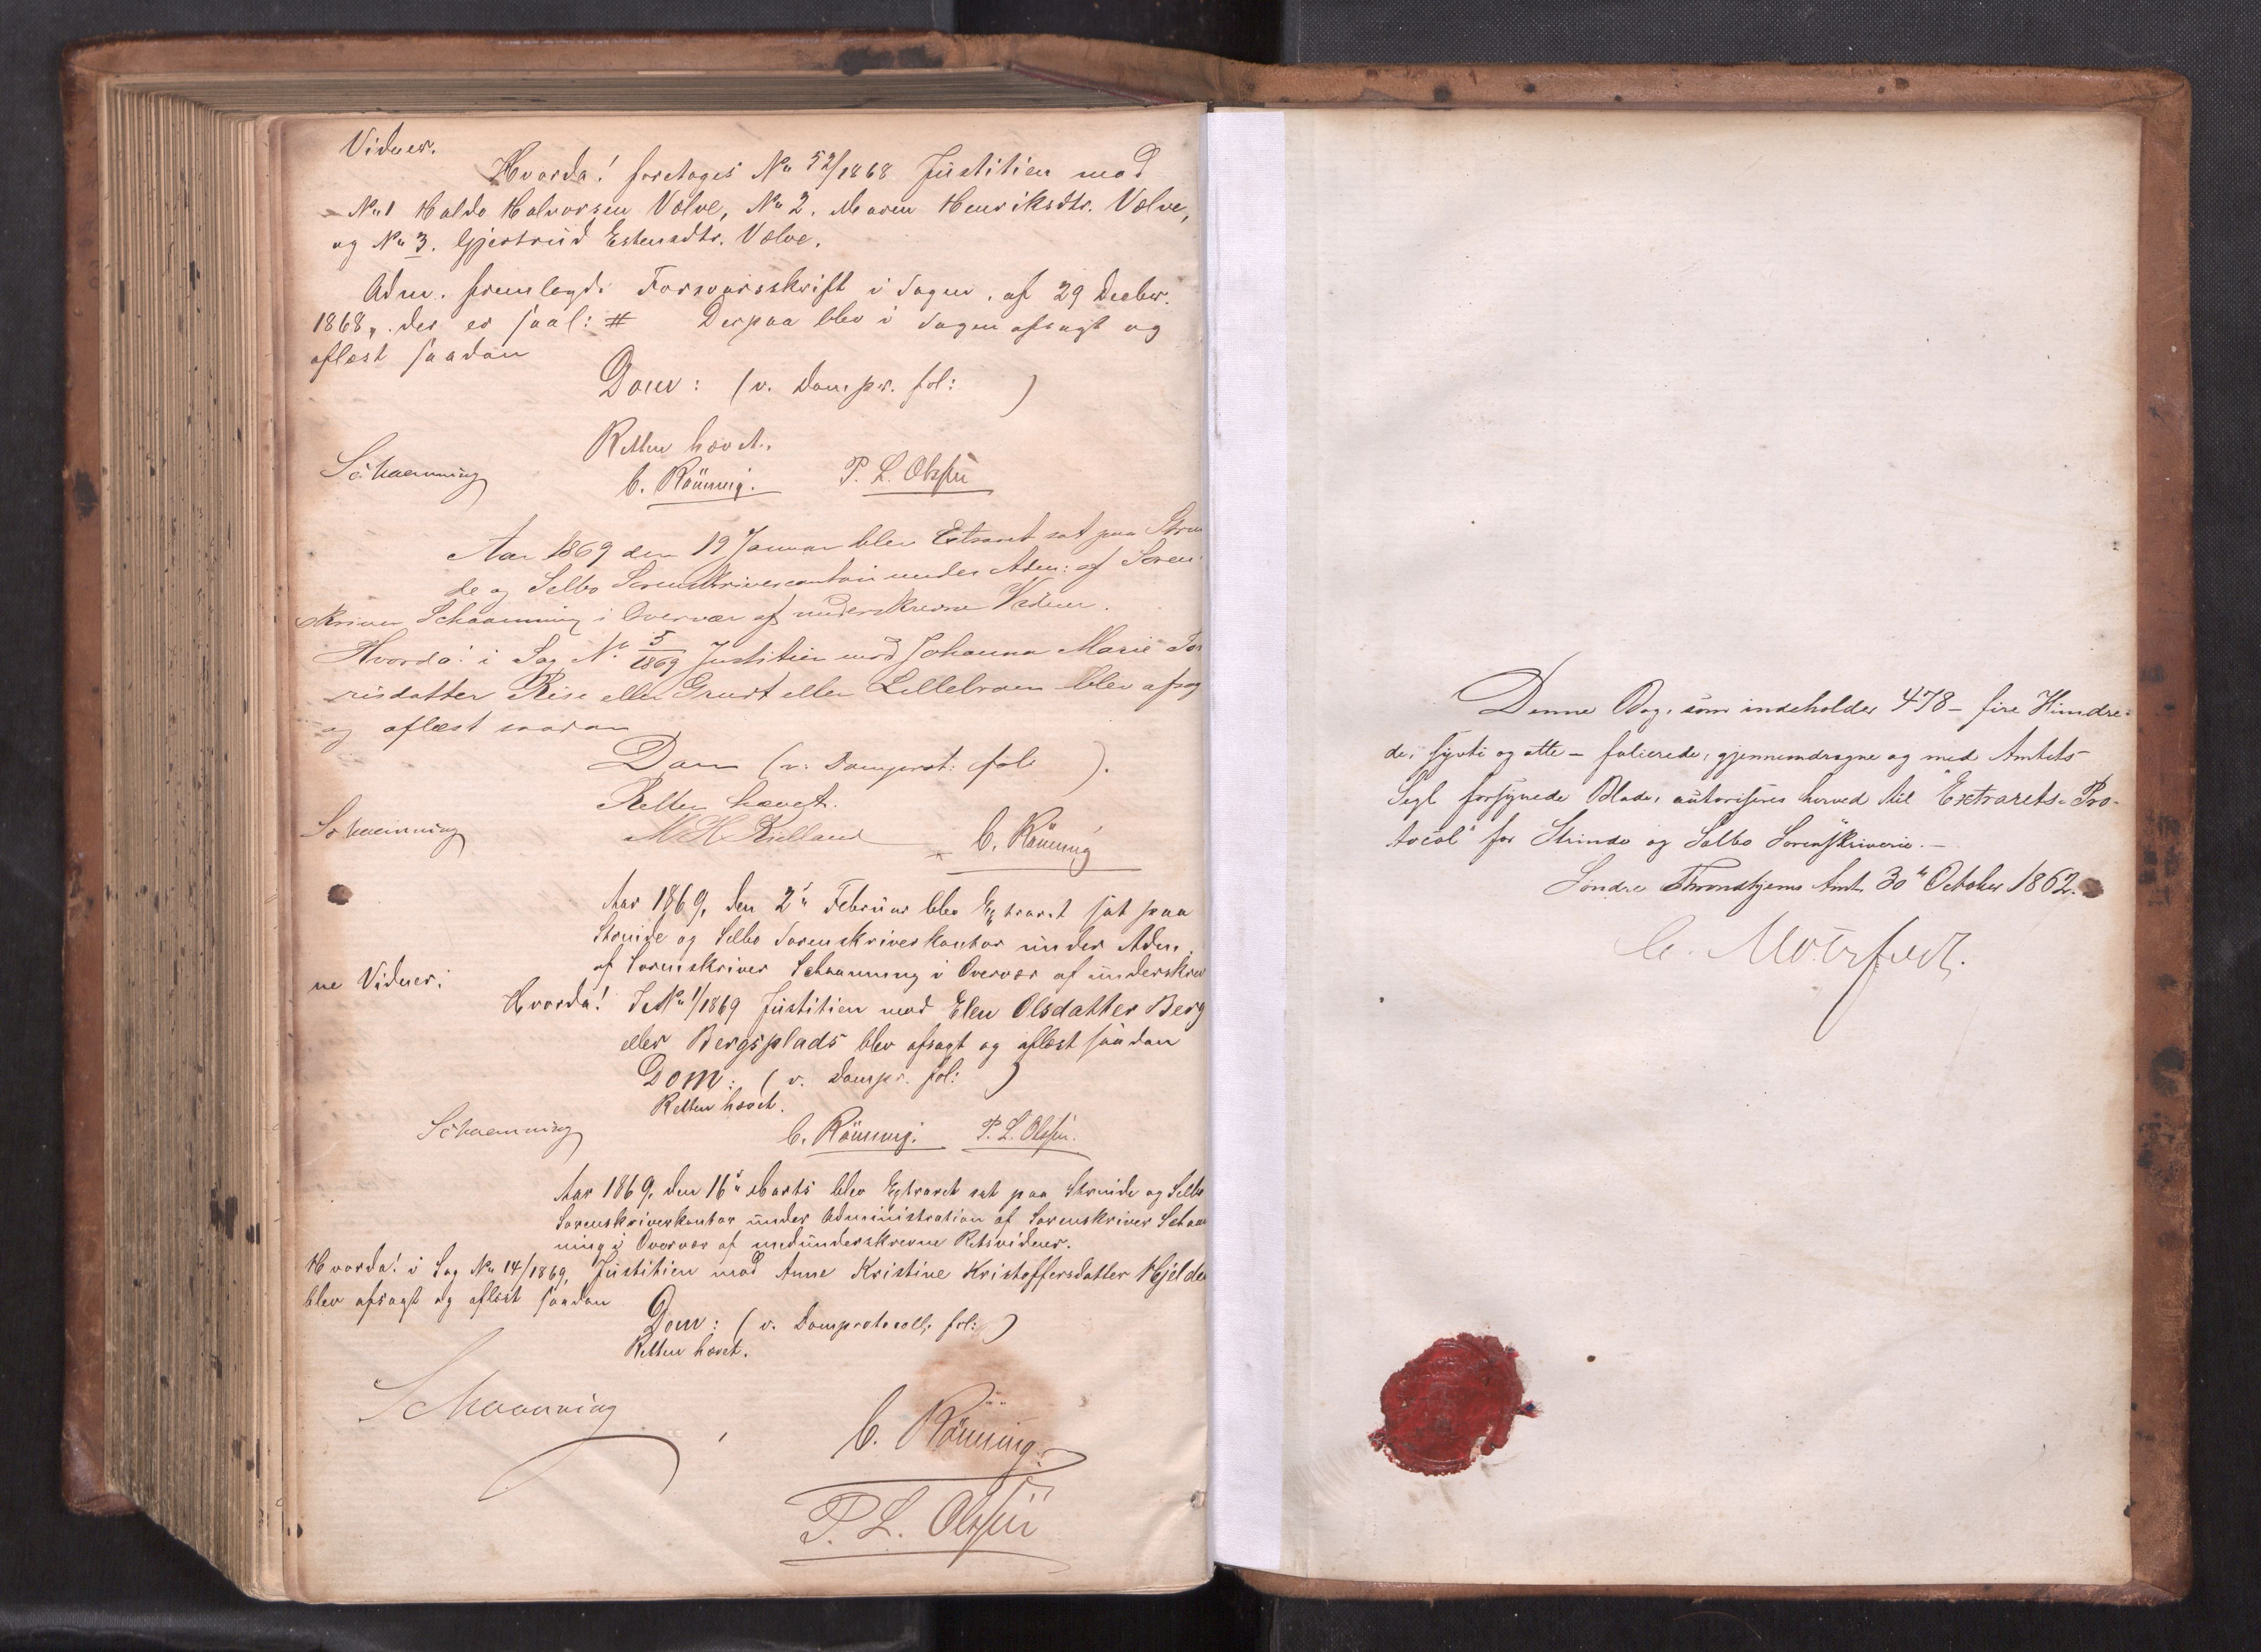 Vidner.
Hvorda! foretoges No 52/1868 Justitien mod
No 1 Haldo Halvorsen Volve, No 2. Maren Henriksdtr. Volve,
og No 3. Gjertrud Estensdtr. Volve.
Adm. fremlagde Forsvarsskrift i Sagen, af 29 Decbr.
1868, der er saal: # Derpaa blev i Sagen afsagt og
aflæst saadan
Dom: (v. Dompr. fol: )
Retten hævet.
Schaanning
C. Rönning. P. L. Olsen
Aar 1869 den 19 Januar blev Extraret sat paa Strin
de og Selbo Sorenskrivercontoir under Adm: af Soren
skriver Schaanning i Overvær af underskrevne Vidner.
Hvorda! i Sag No 5/1869 Justitien mod Johanna Marie To
risdatter Rise eller Grust eller Lillebroen blev afsag
og aflæst saadan
Dom (v: Domprot: fol ).
Retten hævet.
Schaanning
M H Kielland C. Rönning
Aar 1869, den 2n Februar blev Extraret sat paa
Strinde og Selbo Sorenskriverkontor under Adm.
af Sorenskriver Schaanning i Overvær af underskrev
ne Vidner:
Hvorda! I No 1/1869 Justitien mod Elen Olsdatter Berg
eller Bergsplads blev afsagt og aflæst saadan
Dom: (v. Dompr. fol: )
Retten hævet.
Schaanning
C. Rönning. P. L. Olsen.
Aar 1869, den 16n Marts blev Extraret sat paa Strinde og Selbo
Sorenskriverkontor under Administration af Sorenskriver Schaan
ning i Overvær af medunderskrevne Retsvidner.
Hvorda! i Sag No 14/1869, Justitien mod Anne Kristine Kristoffersdatter Hjelde
blev afsagt og aflæst saadan
Dom: (v. Domprotocoll: fol: )
Retten hævet.
Schaanning
C. Rönning.
P. L. Olsen
Denne Bog, som indeholder 478 - fire Hundre-
de, sytti og otte - folierede, gjennemdragne og med Amtets
Segl forsynede Blade, autoriseres herved til "Extrarets-Pro-
tocol" for Strinde og Selbo Sorenskriverie. -
Søndre Throndhjems Amt 30te October 1862.
C. Motzfeldt.